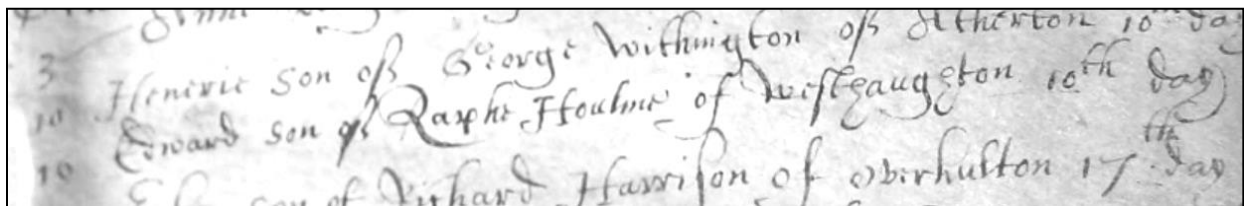 3
10 Henerie son of George Withington of Atherton 10th day
10 Edward son of Raphe Houlme of Westhaughton 10th day
son of Richard Harrison of Overhulton 17th day